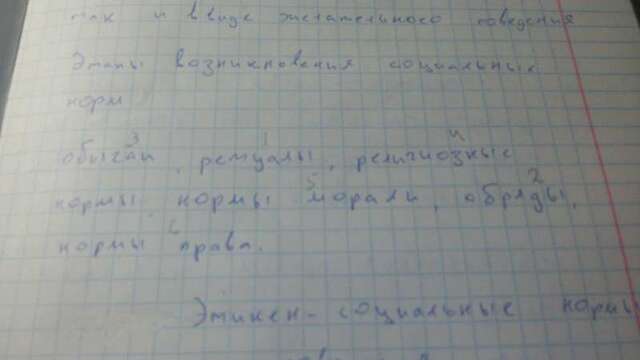 так и в виде желательного поведения
Этапы возникновения социальных
норм
3 1 4
обычаи, ритуалы, религиозные
5 2
нормы, нормы морали, обряды,
6
нормы права.
Этикет - социальные нормы